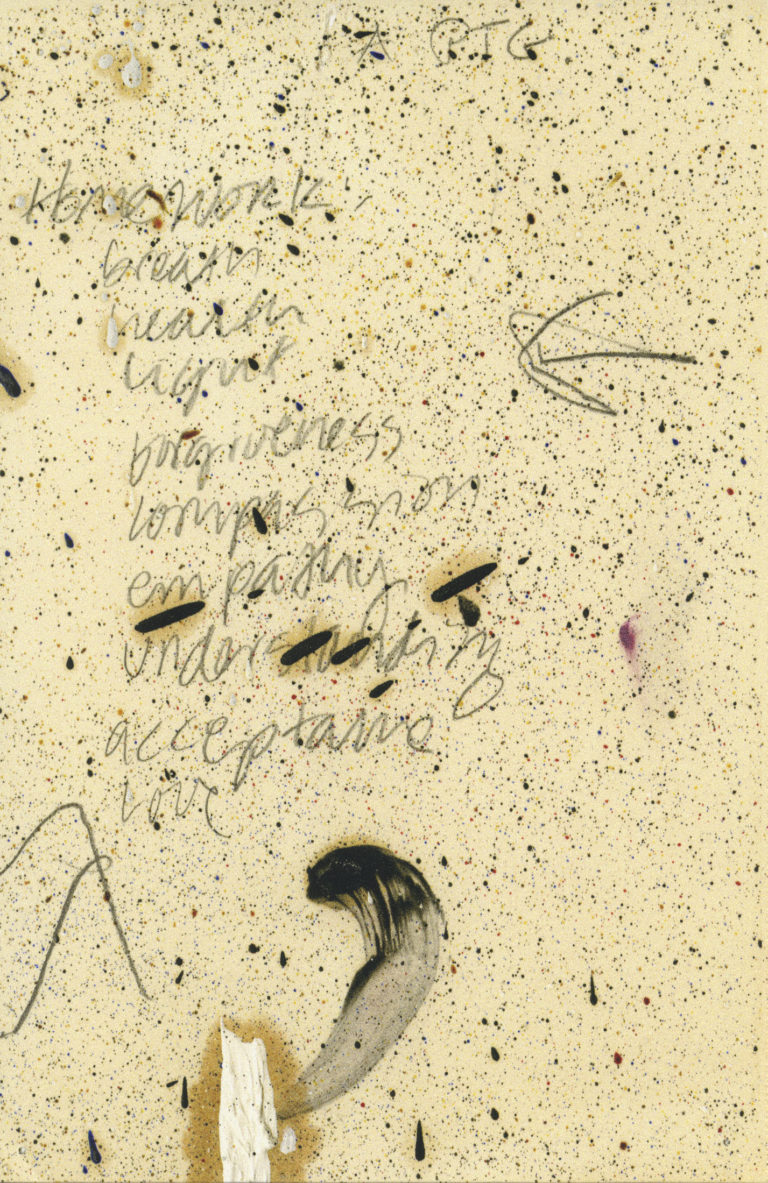 A PIG
Homework
breath
health
light
forgiveness
compassion
empathy
understanding
acceptance
love